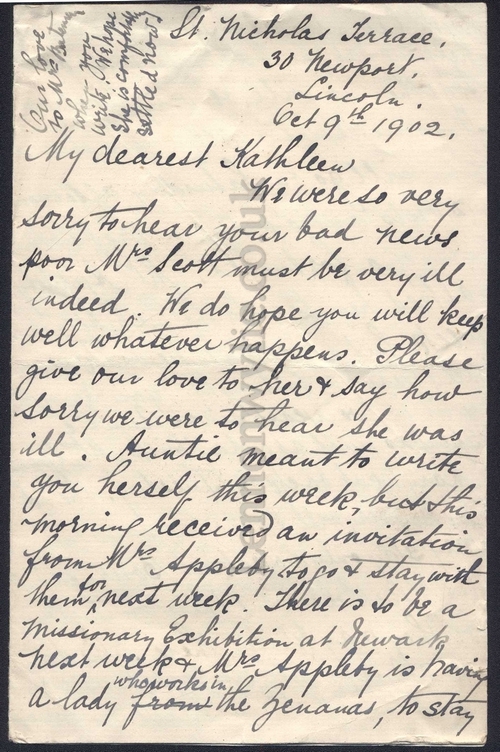 St. Nicholas Terrace,
30 Newport,
Lincoln.
Oct 9th 1902.
My dearest Kathleen
We were so very
sorry to hear your bad news.
poor Mrs Scott must be very ill
indeed. We do hope you will keep
well whatever happens. Please
give our love to her & say how
sorry we were to hear she was
ill. Auntie meant to write
you herself this week, but this
morning received an invitation
from Mrs Appleby to go & stay with
them for next week. There is to be a
Missionary Exhibition at Newark
next week & Mrs Appleby is having
a lady who works in from the Zenanas, to stay
Our love
to Mrs
when you
write. We hope
she is
settled now